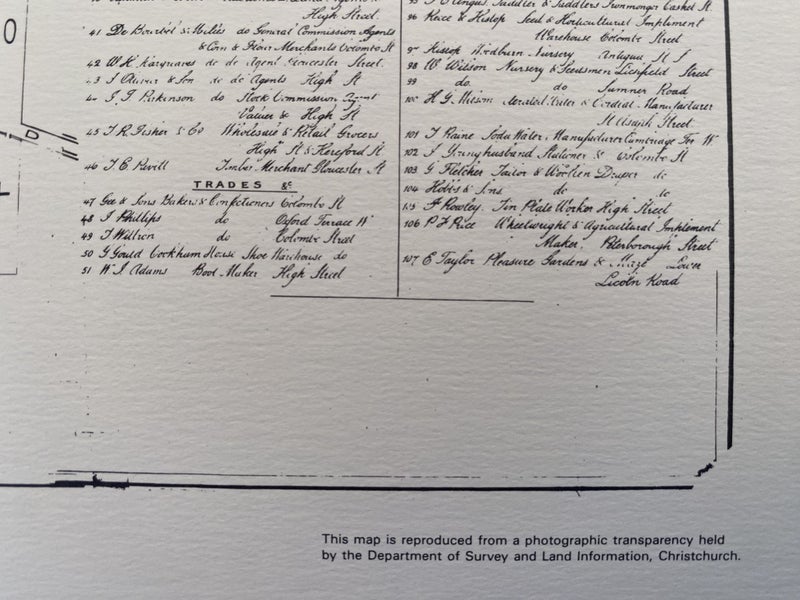 High Street
41 De Bourbel & Miles do General Commission Agents
& Corn & Flour Merchants Colombo St
42 W. H. Hargreaves do do Agent Gloucester Street.
43 J Oliver & Son do do Agents High St
44 J. T. Parkinson do Stock Commission Agent
Valuer & High St
45 T. R. Fisher & Co Wholesale & Retail Grocers
High St & Hereford St
46 T. C. Revitt Timber Merchant Gloucester St
TRADES &c
47 Gee & Sons Bakers & Confectioners Colombo St
48 J Phillips do Oxford Terrace W
49 T do Colombo Street
50 G Gould Cookham House Shoe Warehouse do
51 W. J. Adams Boot Maker High Street
95 J O Angus Saddler & Saddlers Ironmonger Cashel St.
96 Race & Hislop Seed & Horticultural Implement
Warehouse Colombo Street
97 Hislop Nursery Antigua St S
98 W Wilson Nursery & Seedsmen Lichfield Street
99 do. do Sumner Road
100 H. G. Milsom Aerated Water & Cordial Manufacturer
St Asaph Street
101 J Raine Soda Water Manufacturer Cambridge Ter W
102 J Younghusband Stationer & Colombo St
103 G Fletcher Tailor & Woollen Draper do
104 Hobbs & Sons. do do
105 F Rowley. Tin Plate Worker High Street
106 P. F. Rice Wheelwright & Agricultural Implement
Maker. Peterborough Street
107 E Taylor Pleasure Gardens & Maze Lower
Lincoln Road
This map is reproduced from a photographic transparency held
by the Department of Survey and Land Information, Christchurch.